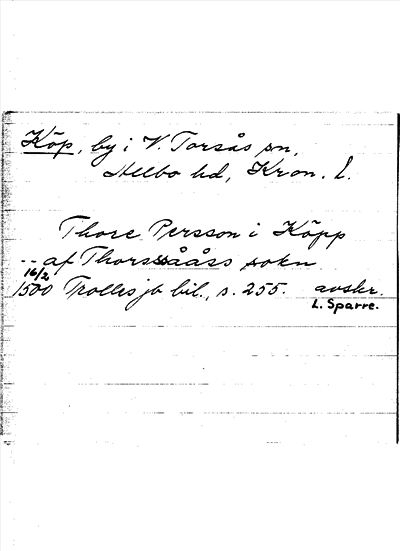 Köp, by i V. Torsås sn,
Allbo hd, Kron. l.
Thore Persson i Köpp
-- af Thorssååss sokn
16/2
1500 Trolles jb bil., s. 255. avskr.
L. Sparre.